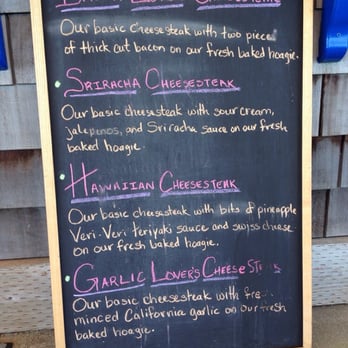 Our basic cheesesteak with two pieces
of thick cut bacon on our fresh baked hoagie.
SRIRACHA CHEESESTEAK
Our basic cheesesteak with sour cream,
jalepenos, and Sriracha sauce on our fresh
baked hoagie.
HAWAIIAN CHEESESTEAK
Our basic cheesesteak with bits of pineapple
Veri-Veri teriyaki sauce and swiss cheese
on our fresh baked hoagie.
GARLIC LOVER'S CHEESE
Our basic cheesesteak with
minced California garlic on our fresh
baked hoagie.